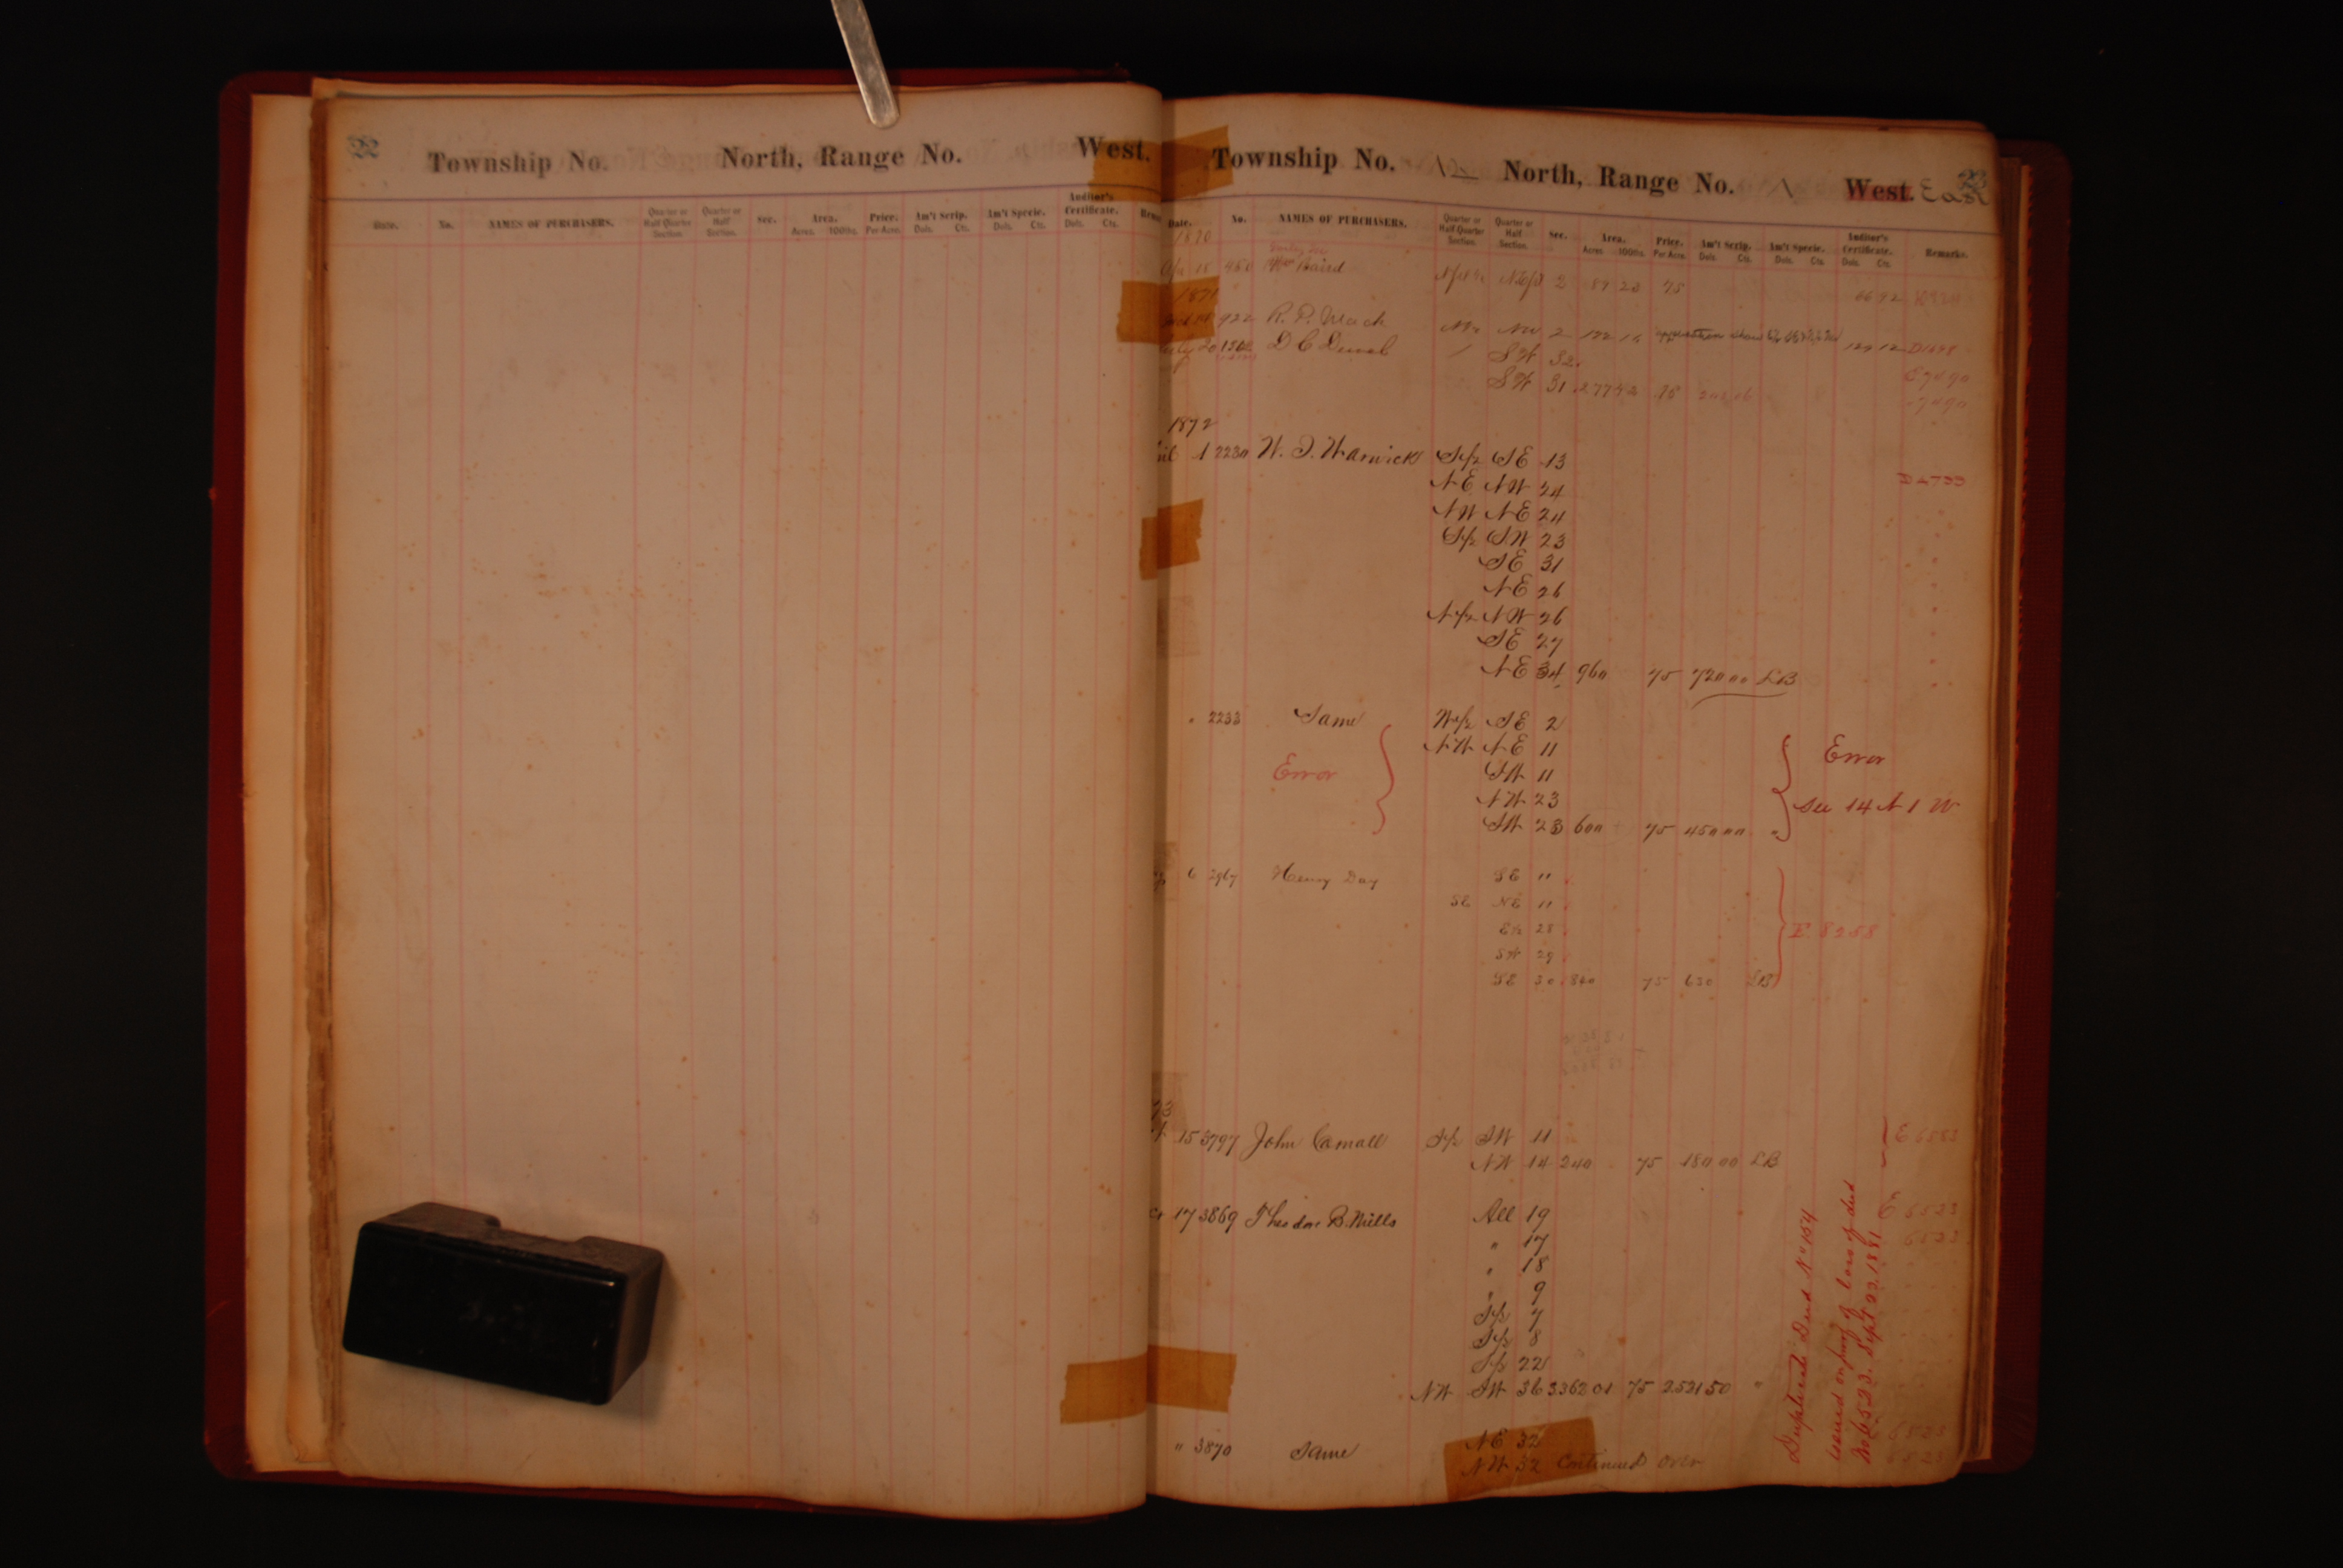 22
Township No. North, Range No. West.
Date. No. NAMES OF PURCHASERS. Quarter or Half Quarter Section. Quarter or Half Section. Sec. Area. Acres. 100ths. Price. Per Acre. Am't Scrip. Dols. Cts. Am't Specie. Dols. Cts. Auditor's Certificate. Dols. Cts.
Township No. North, Range No. 1 West. East
Date. No. NAMES OF PURCHASERS. Quarter or Half Quarter Section. Quarter or Half Section. Sec. Area. Acres. 100ths. Price. Per Acre. Am't Scrip. Dols. Cts. Am't Specie. Dols. Cts. Auditor's Certificate. Dols. Cts. Remarks.
1870
Baird 2 75
1871
922 R. P. Mack NW 2
20 D C SW 32
SW 31 277 42 75
1872
1 2230 W. J. Warwick S½ SE 13
NE NW 24 D 4733
NW NE 24
S½ SW 23
SE 31
NE 26
N½ NW 26
SE 27
NE 34 960 75 720 00 LB
" 2233 Same W½ SE 2
NW NE 11 Error
Error SW 11
NW 23 See 14 N 1 W
SW 23 600 75 450 00 "
6 2967 Henry Day SE 11
SE NE 11
E½ 28 E 8258
SW 29
SE 30 840 75 630 LB
73
15 3797 John Carnall S½ SW 11 E 6583
NW 14 240 75 180 00 LB
17 3869 Theodore B. Mills All 19 E 6523
" 17 6523
" 18
" 9
S½ 7
S½ 8
S½ 22
NW SW 36 3362 01 75 2521 50 "
Duplicate Deed No 154
issued on proof of loss of deed
No 6523. Sept 22. 1881
" 3870 Same NE 32 6523
NW 32 Continued Over 6523